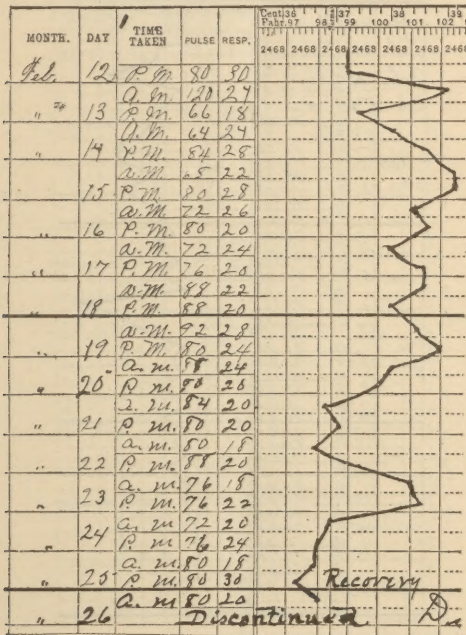 Cent. 36 37 38 39
Fahr. 97 98 99 100 101 102
MONTH. DAY TIME TAKEN PULSE RESP. 2468 2468 2468 2468 2468 2468
Feb. 12 P.M. 80 30
A.M. 120 24
" 13 P.M. 66 18
A.M. 64 24
" 14 P.M. 84 28
A.M. 65 22
15 P.M. 80 28
A.M. 72 26
" 16 P.M. 80 20
A.M. 72 24
" 17 P.M. 76 20
A.M. 88 22
" 18 P.M. 88 20
A.M. 92 28
" 19 P.M. 80 24
A.M. 88 24
" 20 P.M. 80 20
A.M. 84 20
" 21 P.M. 80 20
A.M. 80 18
" 22 P.M. 88 20
A.M. 76 18
" 23 P.M. 76 22
A.M. 72 20
" 24 P.M. 76 24
A.M. 80 18
" 25 P.M. 80 30 Recovery
A.M. 80 20
" 26 Discontinued